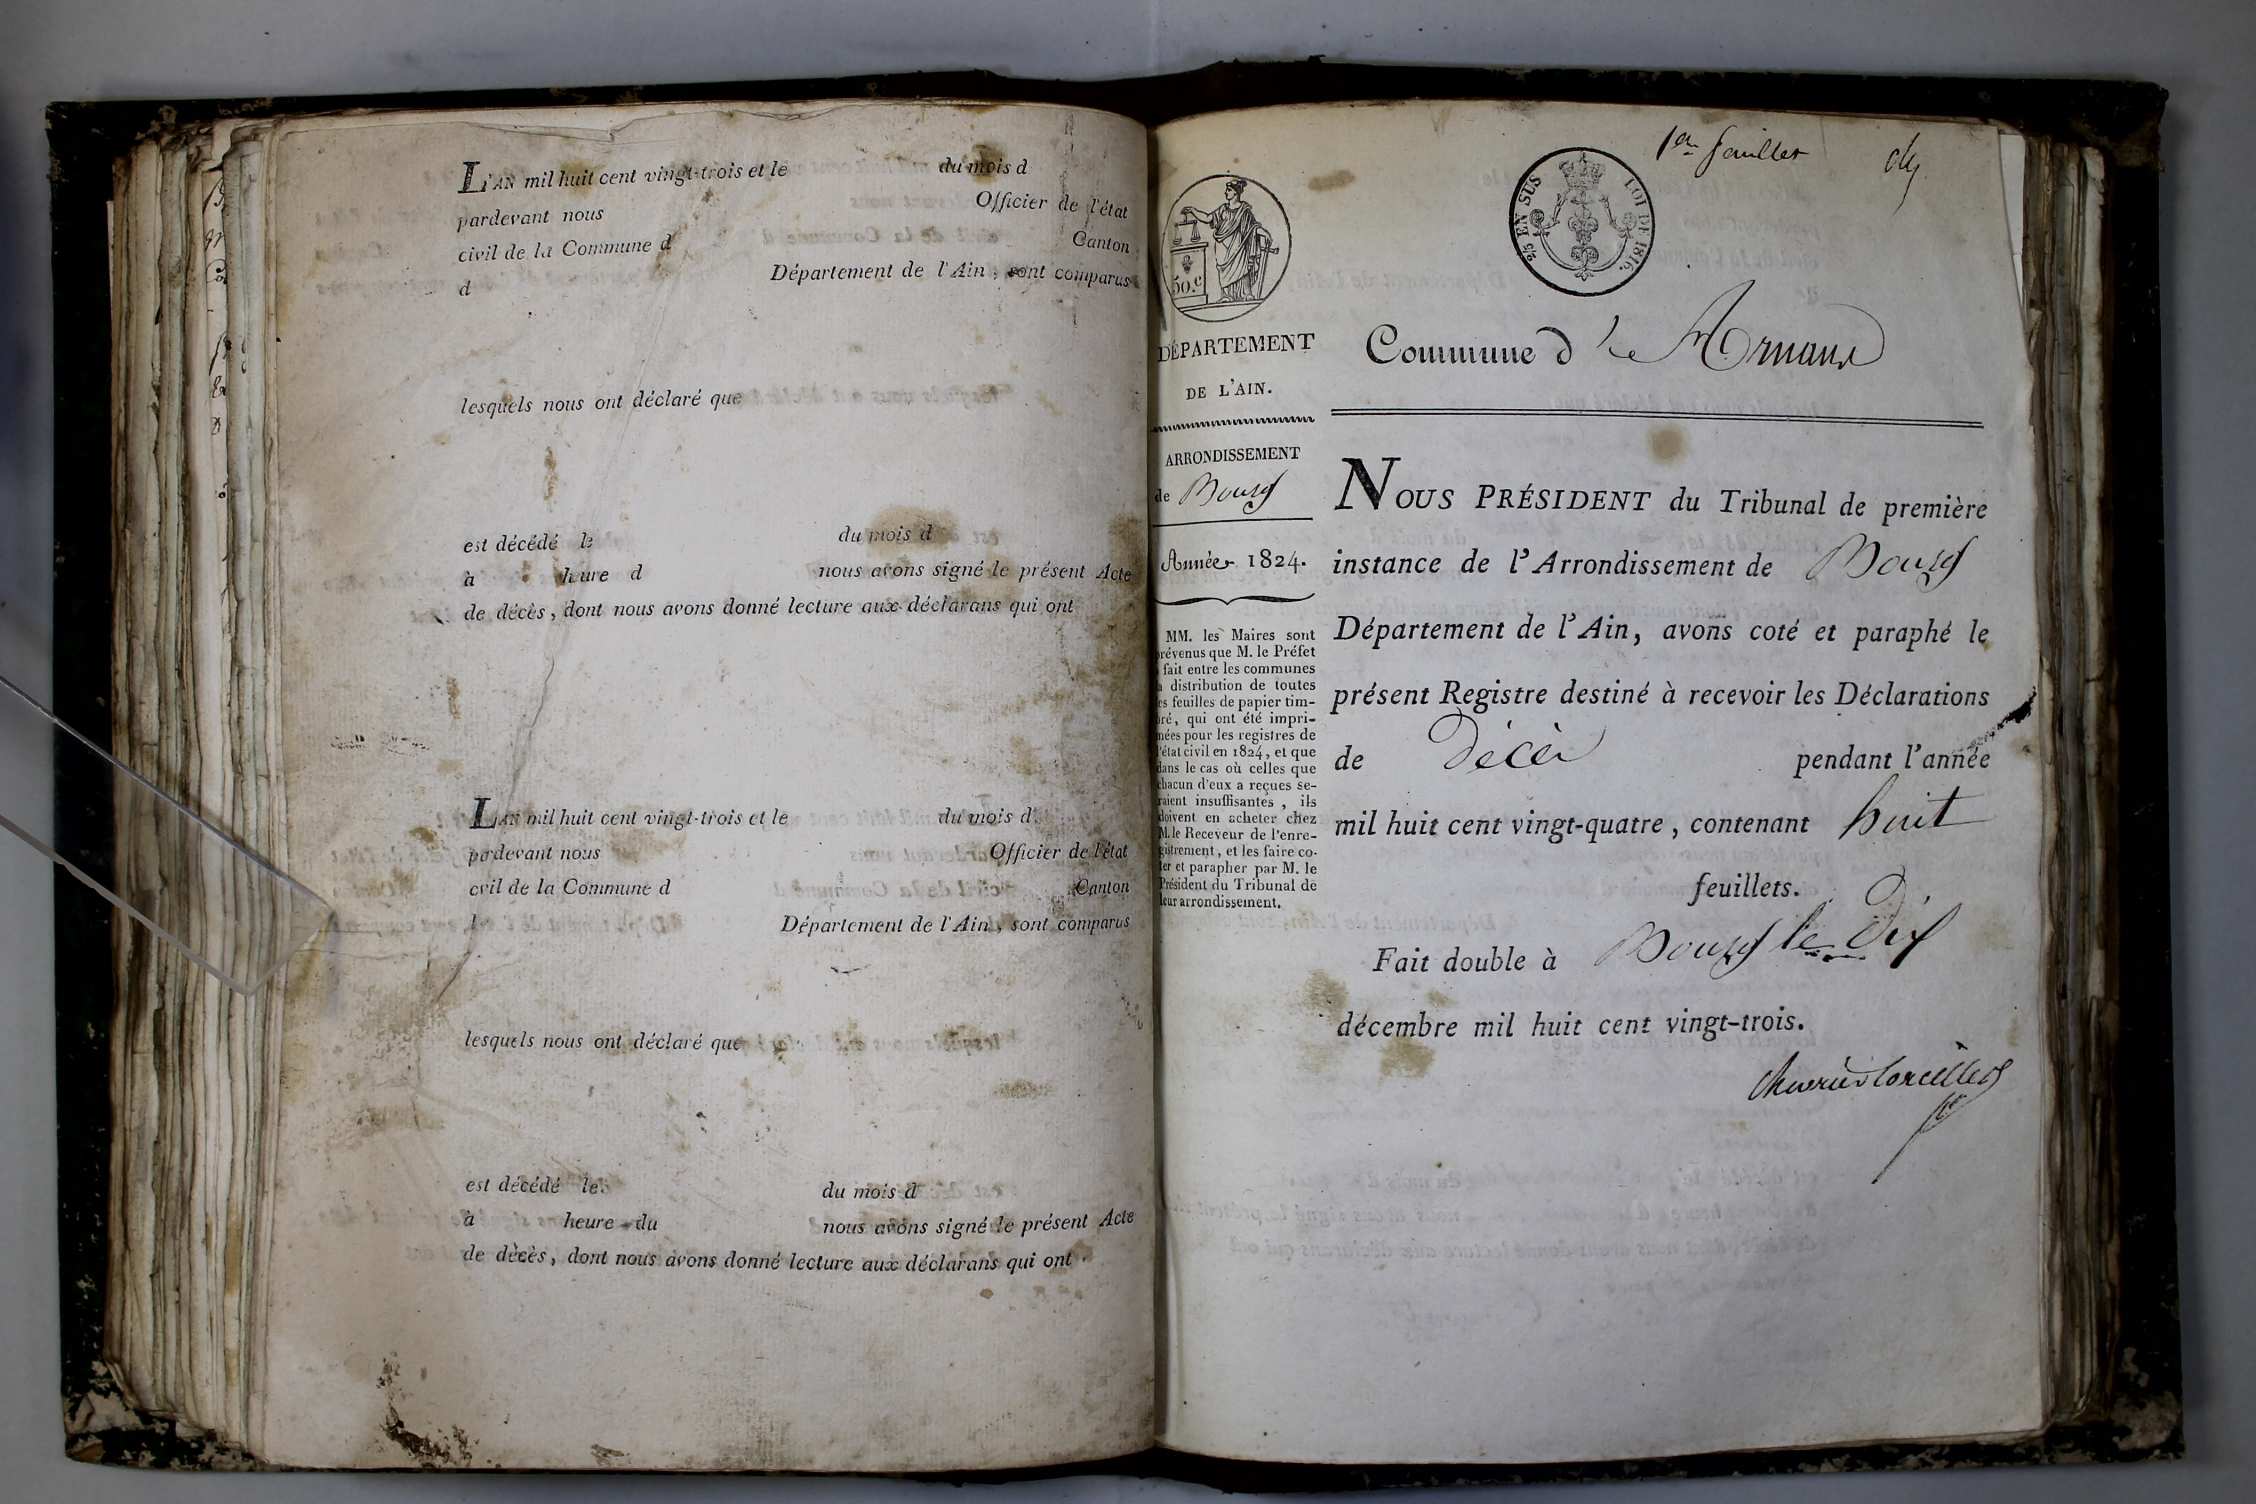 L'AN mil huit cent vingt-trois et le du mois d
pardevant nous Officier de l'état
civil de la Commune d Canton
d Département de l'Ain, sont comparus
lesquels nous ont déclaré que
est décédé le du mois d
à heure d nous avons signé le présent Acte
de décès, dont nous avons donné lecture aux déclarans qui ont
L'AN mil huit cent vingt-trois et le du mois d
pardevant nous Officier de l'état
civil de la Commune d Canton
d Département de l'Ain, sont comparus
lesquels nous ont déclaré que
est décédé le du mois d
à heure du nous avons signé le présent Acte
de décès, dont nous avons donné lecture aux déclarans qui ont
1er feuillet
50.c
2/5 EN SUS LOI DE 1816.
DÉPARTEMENT
DE L'AIN.
ARRONDISSEMENT
de Bourg
Année 1824.
MM. les Maires sont
prévenus que M. le Préfet
a fait entre les communes
la distribution de toutes
les feuilles de papier tim-
bré, qui ont été impri-
mées pour les registres de
l'état civil en 1824, et que
dans le cas où celles que
chacun d'eux a reçues se-
raient insuffisantes, ils
doivent en acheter chez
M. le Receveur de l'enre-
gistrement, et les faire co-
ter et parapher par M. le
Président du Tribunal de
leur arrondissement.
Commune d
NOUS PRÉSIDENT du Tribunal de première
instance de l'Arrondissement de Bourg
Département de l'Ain, avons coté et paraphé le
présent Registre destiné à recevoir les Déclarations
de Décès pendant l'année
mil huit cent vingt-quatre, contenant huit
feuillets.
Fait double à Bourg le dix
décembre mil huit cent vingt-trois.